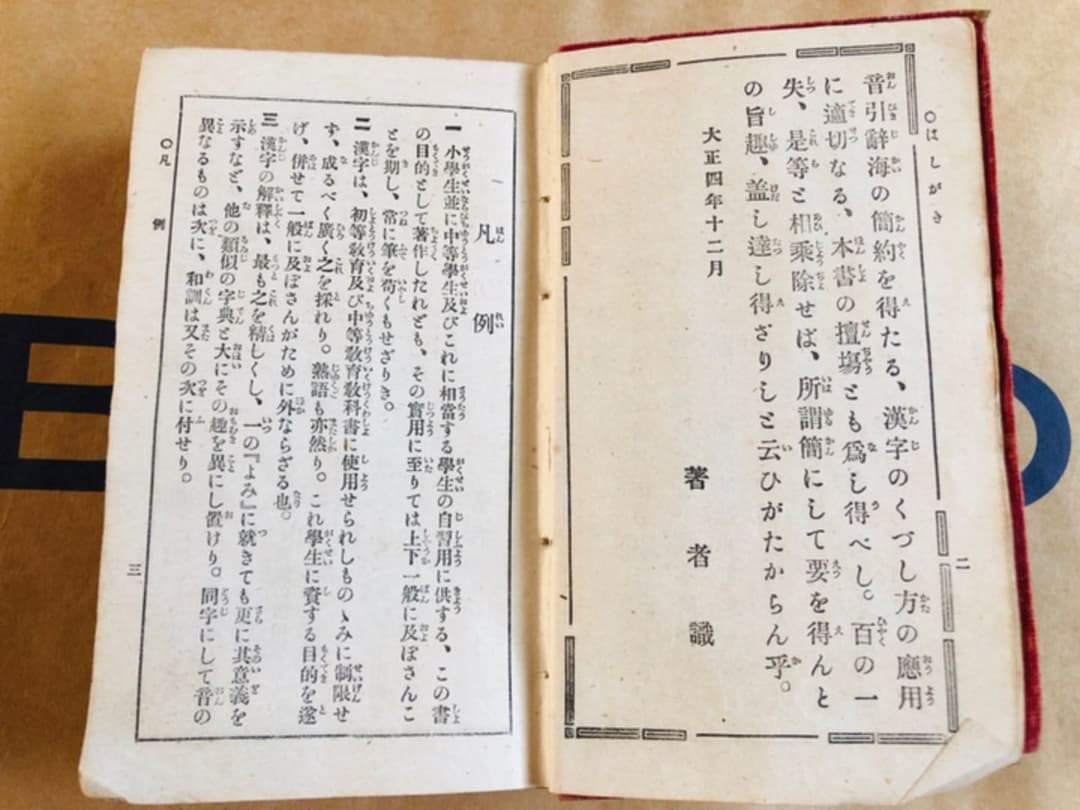 〇はしがき
二
音引辭海の簡約を得たる、漢字のくづし方の應用
に適切なる、本書の擅場とも爲し得べし。百の一
失、是等と相乘除せば、所謂簡にして要を得んと
の旨趣、盖し達し得ざりしと云ひがたからん乎。
大正四年十二月
著者識
凡例
一 小學生並に中等學生及びこれに相當する學生の自習用に供する、この書
の目的として著作したれども、その實用に至りては上下一般に及ぼさんこ
とを期し、常に筆を苟くもせざりき。
二 漢字は、初等敎育及び中等敎育敎科書に使用せられしものゝみに制限せ
ず、成るべく廣く之を採れり。熟語も亦然り。これ學生に資する目的を遂
げ、併せて一般に及ぼさんがために外ならざる也。
三 漢字の解釋は、最も之を精しくし、一の『よみ』に就きても更に其意義を
示すなど、他の類似の字典と大にその趣を異にし置けり。同字にして音の
異なるものは次に、和訓は又その次に付せり。
〇凡例
三